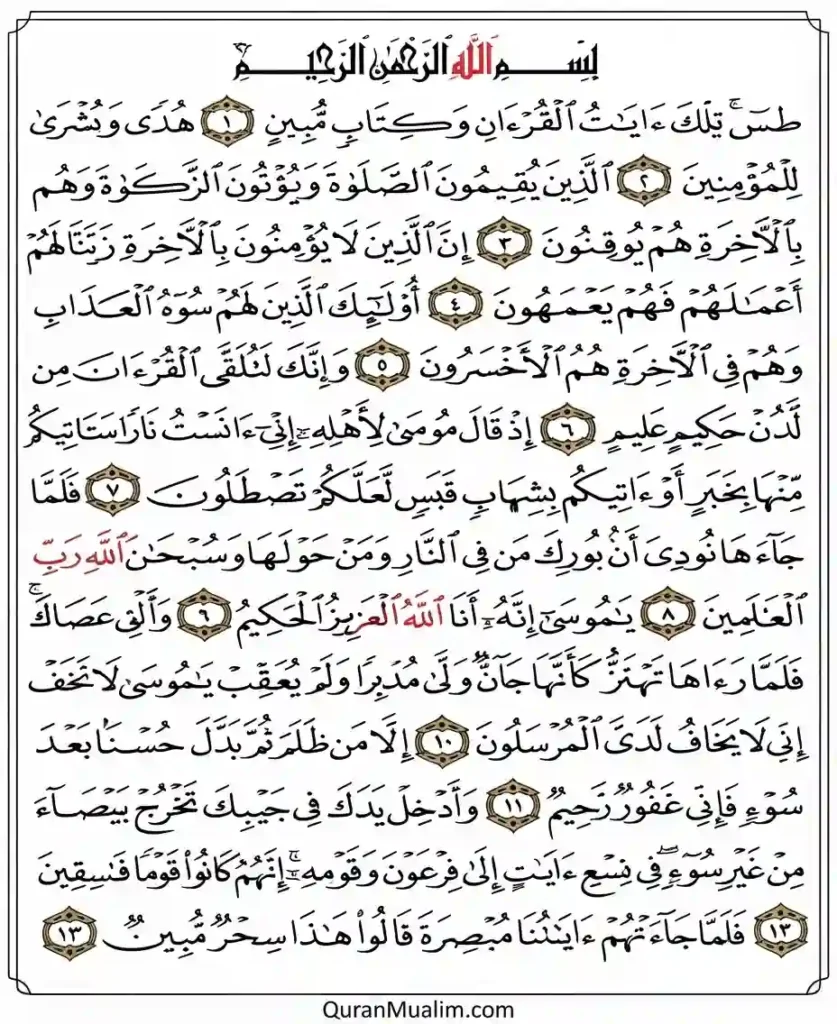 بِسْمِ ٱللَّهِ ٱلرَّحْمَٰنِ ٱلرَّحِيمِ
طسٓ ۚ تِلْكَ ءَايَٰتُ ٱلْقُرْءَانِ وَكِتَابٍ مُّبِينٍ ١ هُدًى وَبُشْرَىٰ
لِلْمُؤْمِنِينَ ٢ ٱلَّذِينَ يُقِيمُونَ ٱلصَّلَوٰةَ وَيُؤْتُونَ ٱلزَّكَوٰةَ وَهُم
بِٱلْأَخِرَةِ هُمْ يُوقِنُونَ ٣ إِنَّ ٱلَّذِينَ لَا يُؤْمِنُونَ بِٱلْأَخِرَةِ زَتَنَّا لَهُمْ
أَعْمَٰلَهُمْ فَهُمْ يَعْمَهُونَ ٤ أُوْلَٰٓئِكَ ٱلَّذِينَ لَهُمْ سُوٓءُ ٱلْعَذَابِ
وَهُمْ فِى ٱلْأَخِرَةِ هُمُ ٱلْأَخْسَرُونَ ٥ وَإِنَّكَ لَتُلَقَّى ٱلْقُرْءَانَ مِن
لَّدُنْ حَكِيمٍ عَلِيمٍ ٦ إِذْ قَالَ مُومَىٰ لِأَهْلِهِۦٓ إِنِّىٓ ءَانَسْتُ نَارًا سَـَٔاتِيكُم
مِّنْهَا بِخَبَرٍ أَوْ ءَاتِيكُم بِشِهَابٍ قَبَسٍ لَّعَلَّكُمْ تَصْطَلُونَ ٧ فَلَمَّا
جَآءَهَا نُودِىَ أَنۢ بُورِكَ مَن فِى ٱلنَّارِ وَمَنْ حَوْلَهَا وَسُبْحَٰنَ ٱللَّهِ رَبِّ
ٱلْعَٰلَمِينَ ٨ يَٰمُوسَىٰٓ إِنَّهُۥٓ أَنَا ٱللَّهُ ٱلْعَزِيزُ ٱلْحَكِيمُ ٩ وَأَلْقِ عَصَاكَ ۚ
فَلَمَّا رَءَاهَا تَهْتَزُّ كَأَنَّهَا جَآنٌّ وَلَّىٰ مُدْبِرًا وَلَمْ يُعَقِّبْ يَٰمُوسَىٰ لَا تَخَفْ
إِنِّى لَا يَخَافُ لَدَىَّ ٱلْمُرْسَلُونَ ١٠ إِلَّا مَن ظَلَمَ ثُمَّ بَدَّلَ حُسْنًۢا بَعْدَ
سُوٓءٍ فَإِنِّى غَفُورٌ زَّحِيمٌ ١١ وَأَدْخِلْ يَدَكَ فِى جَيْبِكَ تَخْرُجْ بَيْصَآءَ
مِنْ غَيْرِ سُوٓءٍ ۖ فِى تِسْعِ ءَايَٰتٍ إِلَىٰ فِرْعَوْنَ وَقَوْمِهِۦٓ ۚ إِنَّهُمْ كَانُوا۟ قَوْمًا فَٰسِقِينَ
١٣ فَلَمَّا جَآءَتْهُمْ ءَايَٰتُنَا مُبْصِرَةً قَالُوا۟ هَٰذَا سِحْرٌ مُّبِينٌ ١٣
QuranMualim.com